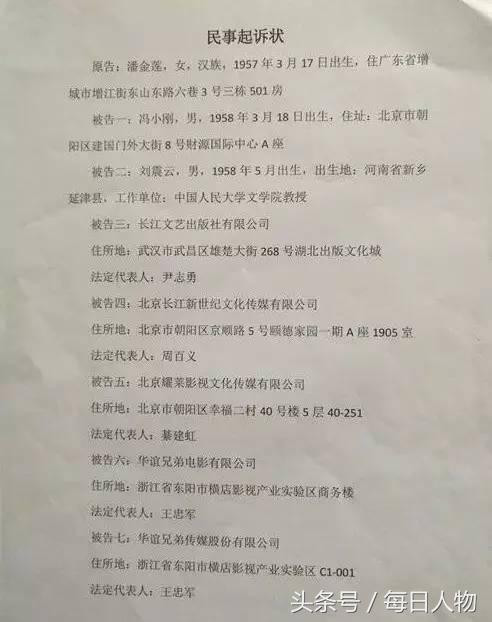 民事起诉状
原告：潘金莲，女，汉族，1957年3月17日出生，住广东省增
城市增江街东山东路六巷3号三栋501房
被告一：冯小刚，男，1958年3月18日出生，住址：北京市朝
阳区建国门外大街8号财源国际中心A座
被告二：刘震云，男，1958年5月出生，出生地：河南省新乡
延津县，工作单位：中国人民大学文学院教授
被告三：长江文艺出版社有限公司
住所地：武汉市武昌区雄楚大街268号湖北出版文化城
法定代表人：尹志勇
被告四：北京长江新世纪文化传媒有限公司
住所地：北京市朝阳区京顺路5号颐德家园一期A座1905室
法定代表人：周百义
被告五：北京耀莱影视文化传媒有限公司
住所地：北京市朝阳区幸福二村40号楼5层40-251
法定代表人：綦建虹
被告六：华谊兄弟电影有限公司
住所地：浙江省东阳市横店影视产业实验区商务楼
法定代表人：王忠军
被告七：华谊兄弟传媒股份有限公司
住所地：浙江省东阳市横店影视产业实验区C1-001
法定代表人：王忠军
头条号 / 每日人物